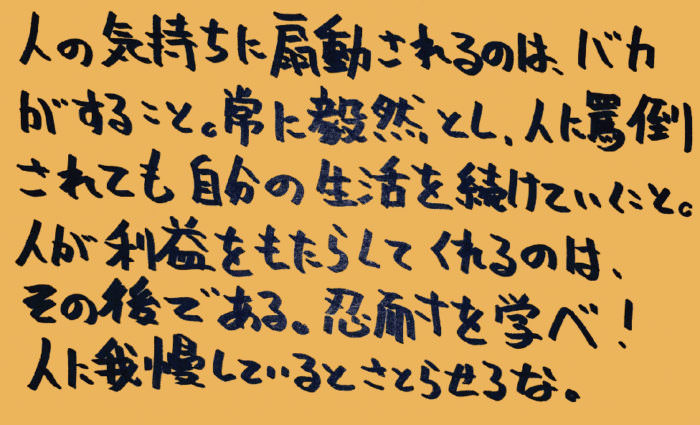 人の気持ちに扇動されるのは、バカ
がすること。常に毅然とし、人に罵倒
されても自分の生活を続けていくこと。
人が利益をもたらしてくれるのは、
その後である。忍耐を学べ!
人に我慢しているとさとらせるな。